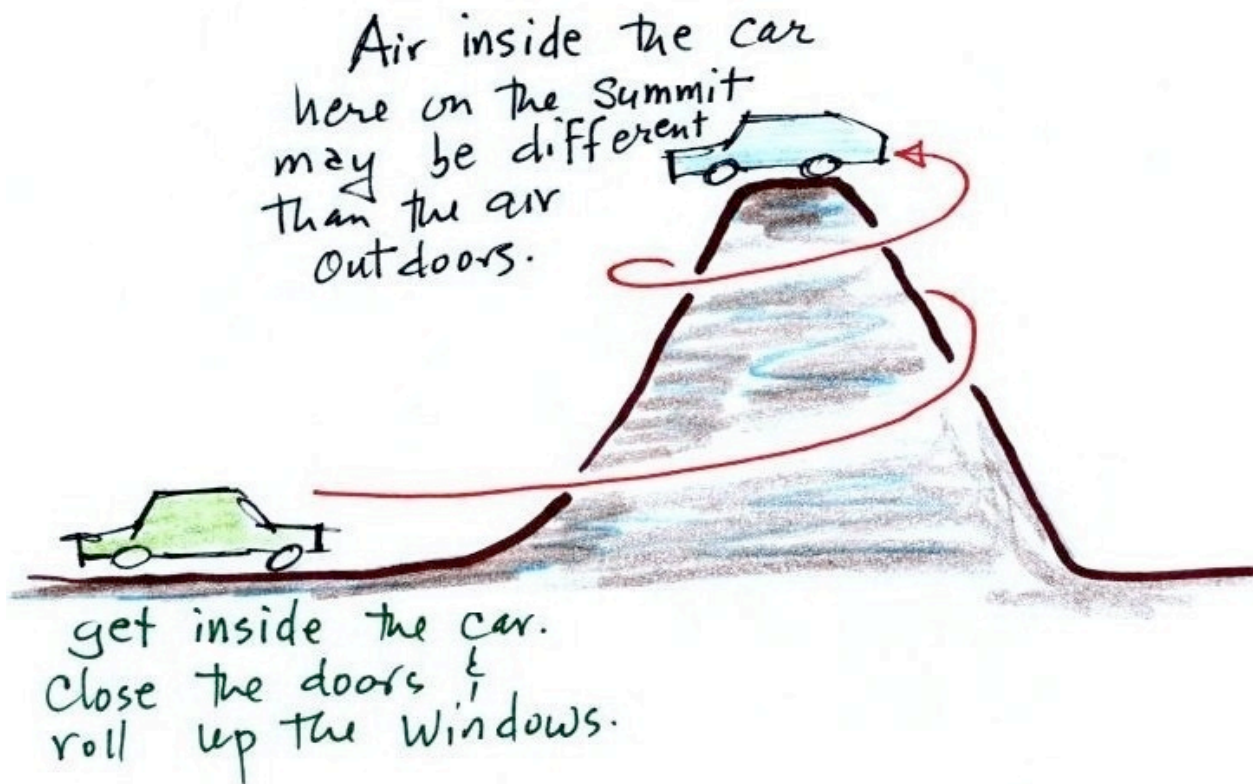 Air inside the car
here on the summit
may be different
than the air
outdoors.
get inside the car.
Close the doors &
roll up the windows.